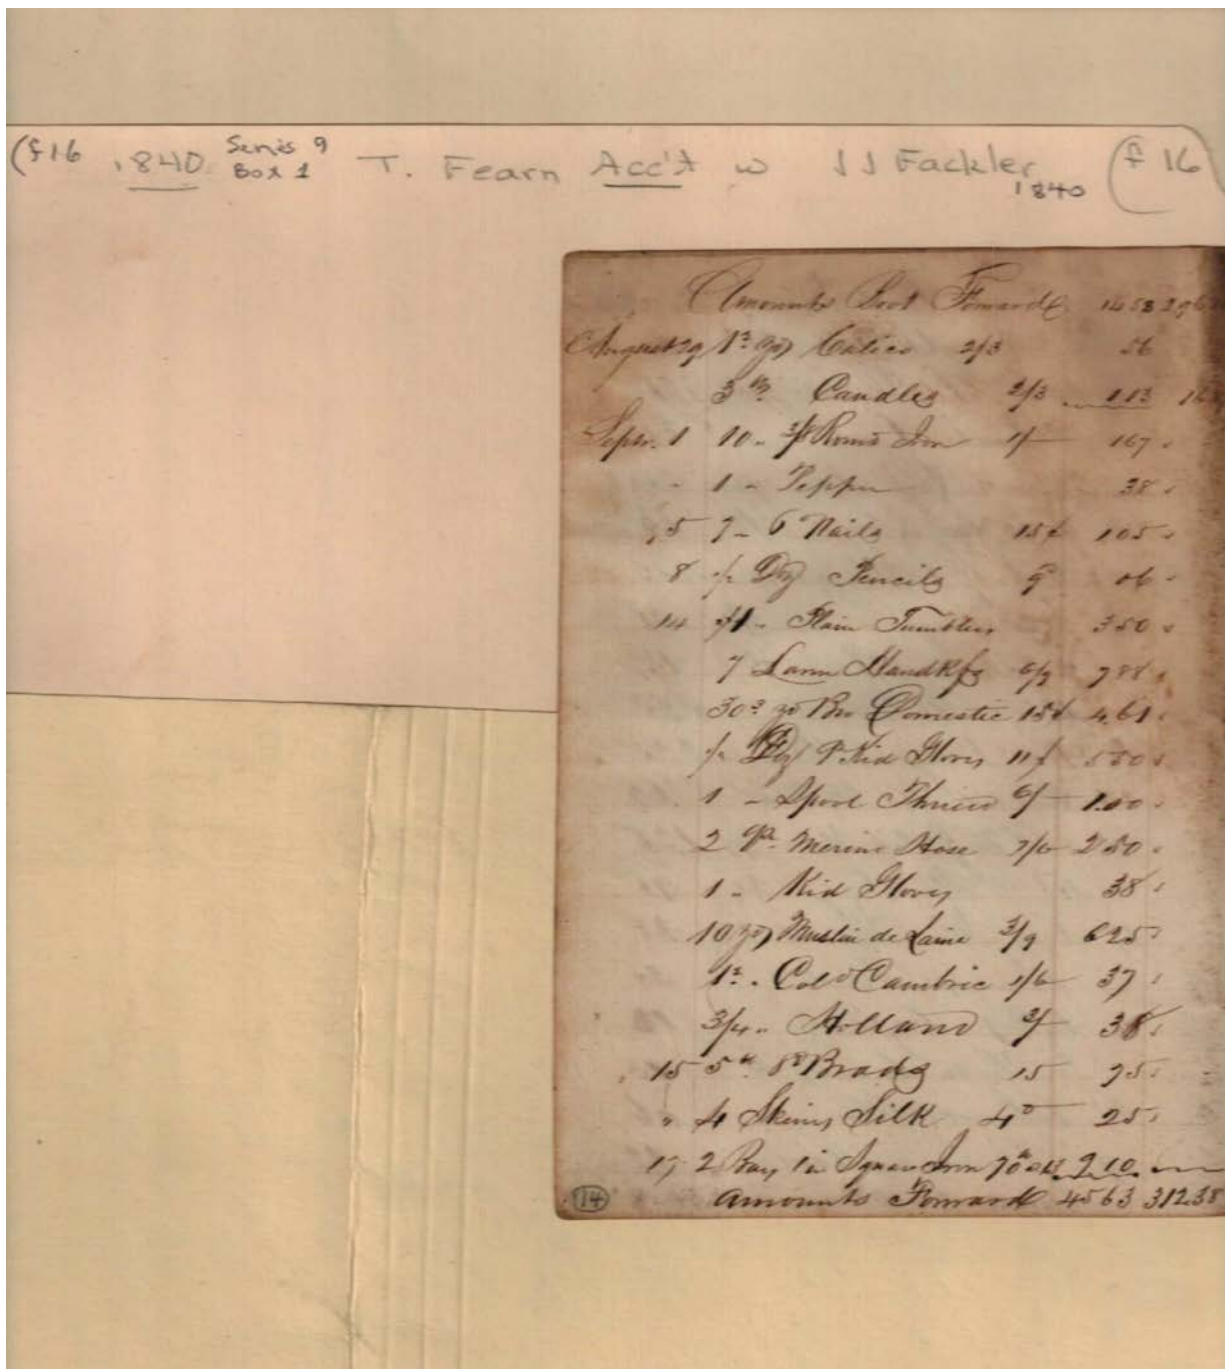 (f16 1840 Series 9 Box 1 T. Fearn Acc't w J J Fackler 1840 (f 16
Amounts Brot Forward 1453 296
August 29 Calico 2/3 56
3 Candles 2/3 113
Septr. 1 10 " 3/8 Round Iron 1/ 167 "
" 1 " Pepper 38 "
5 7 " 6 Nails 15¢ 105 "
8 1/2 Doz Pencils 06 "
14 1 " Plain Tumblers 350 "
7 Handkfs 6/9 788 "
30 yd Bro Domestic 15¢ 4.61 "
1/2 Doz Kid Gloves 11/ 550 "
1 " Spool Thread 6/ 1.00 "
2 pr Merino Hose 7/6 250 "
1 " Kid Gloves 38 "
10 yds Muslin de Laine 3/9 625 "
Cold Cambric 1/6 37 "
3/4 " Holland 3/ 38 "
15 5 8d Brads 15 75 "
" 4 Skeins Silk 4d 25 "
17 2 Bars 1 in Square Iron 70 9.10
14 Amounts Forward 4563 312.38